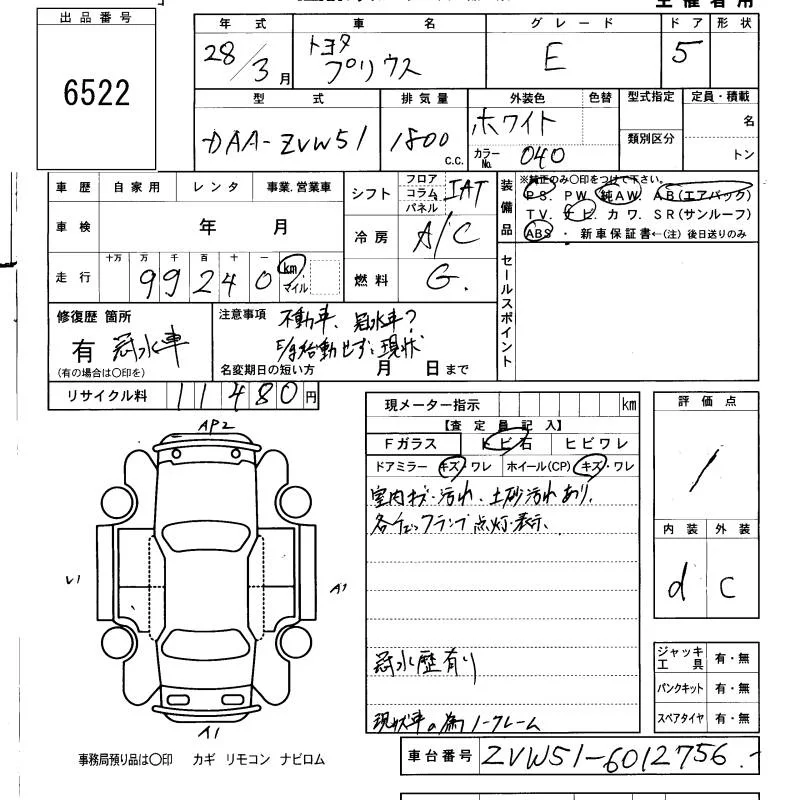 出品番号
6522
年式 車名 グレード ドア 形状
28/3月 トヨタ プリウス E 5
型式 排気量 外装色 色替 型式指定 定員・積載
DAA-ZVW51 1800 c.c. ホワイト 名
カラーNo. 040 類別区分 トン
車歴 自家用 レンタ 事業.営業車
シフト フロア コラム パネル IAT
装備品 ※純正のみ○印をつけて下さい。
PS. PW. 純AW. AB(エアバック)
TV. ナビ. カワ. SR(サンルーフ)
ABS ・ 新車保証書←(注)後日送りのみ
車検 年 月
冷房 A/C
走行 十万 万 千 百 十 一
99240 km マイル
燃料 G.
セールスポイント
修復歴 箇所
有 冠水車
(有の場合は○印を)
注意事項 不動車、冠水車?
E/g始動せず、現状
名変期日の短い方 月 日まで
リサイクル料 11480円
現メーター指示 km
【査定員記入】
Fガラス トビ石 ヒビワレ
ドアミラー キズ・ワレ ホイール(CP) キズ・ワレ
室内キズ・汚れ、土砂汚れあり、
各チェックランプ点灯・表示、
冠水歴有り
現状車の為ノークレーム
評価点
1
内装 外装
d C
AP2
U1
A1
A1
ジャッキ工具 有・無
パンクキット 有・無
スペアタイヤ 有・無
事務局預り品は○印 カギ リモコン ナビロム
車台番号 ZVW51-6012756.-